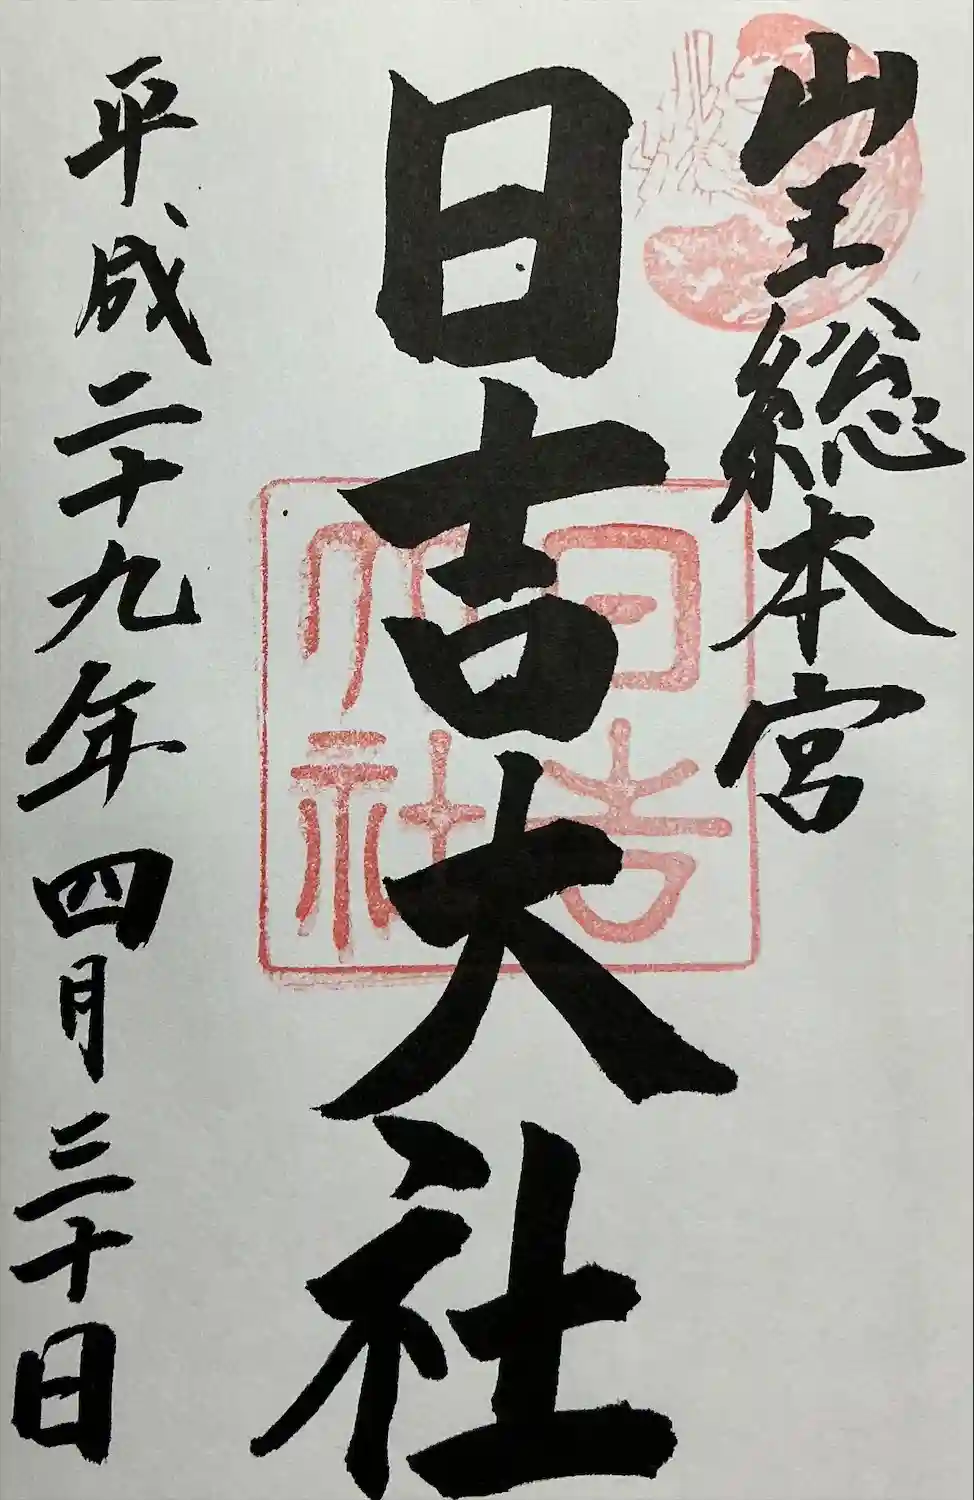 山王総本宮
日吉大社
日吉
大社
平成二十九年四月三十日